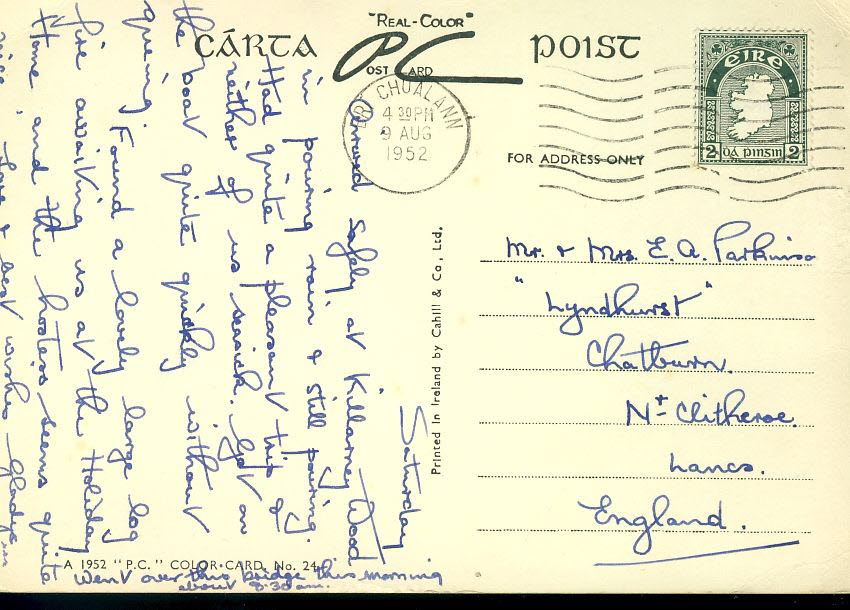 "REAL-COLOR"
CÁRTA PC POIST
POST CARD
BRÍ CHUALANN
4 30PM
9 AUG
1952
EIRE
2 DÁ PINGIN 2
FOR ADDRESS ONLY
Saturday
Arrived safely at Killarney Wood
in pouring rain & still pouring.
Had quite a pleasant trip &
neither of us seasick. Got on
the boat quite quickly without
queing. Found a lovely large log
fire awaiting us at the Holiday
Home and the hostess seems quite
nice. Love & best wishes Gladys
Went over this bridge this morning
about 8-30 am.
Mr. & Mrs. E. A. Parkinson
"Lyndhurst"
Chatburn.
Nt Clitheroe.
Lancs.
England.
Printed in Ireland by Cahill & Co, Ltd.
A 1952 "P.C." COLOR-CARD. No. 24